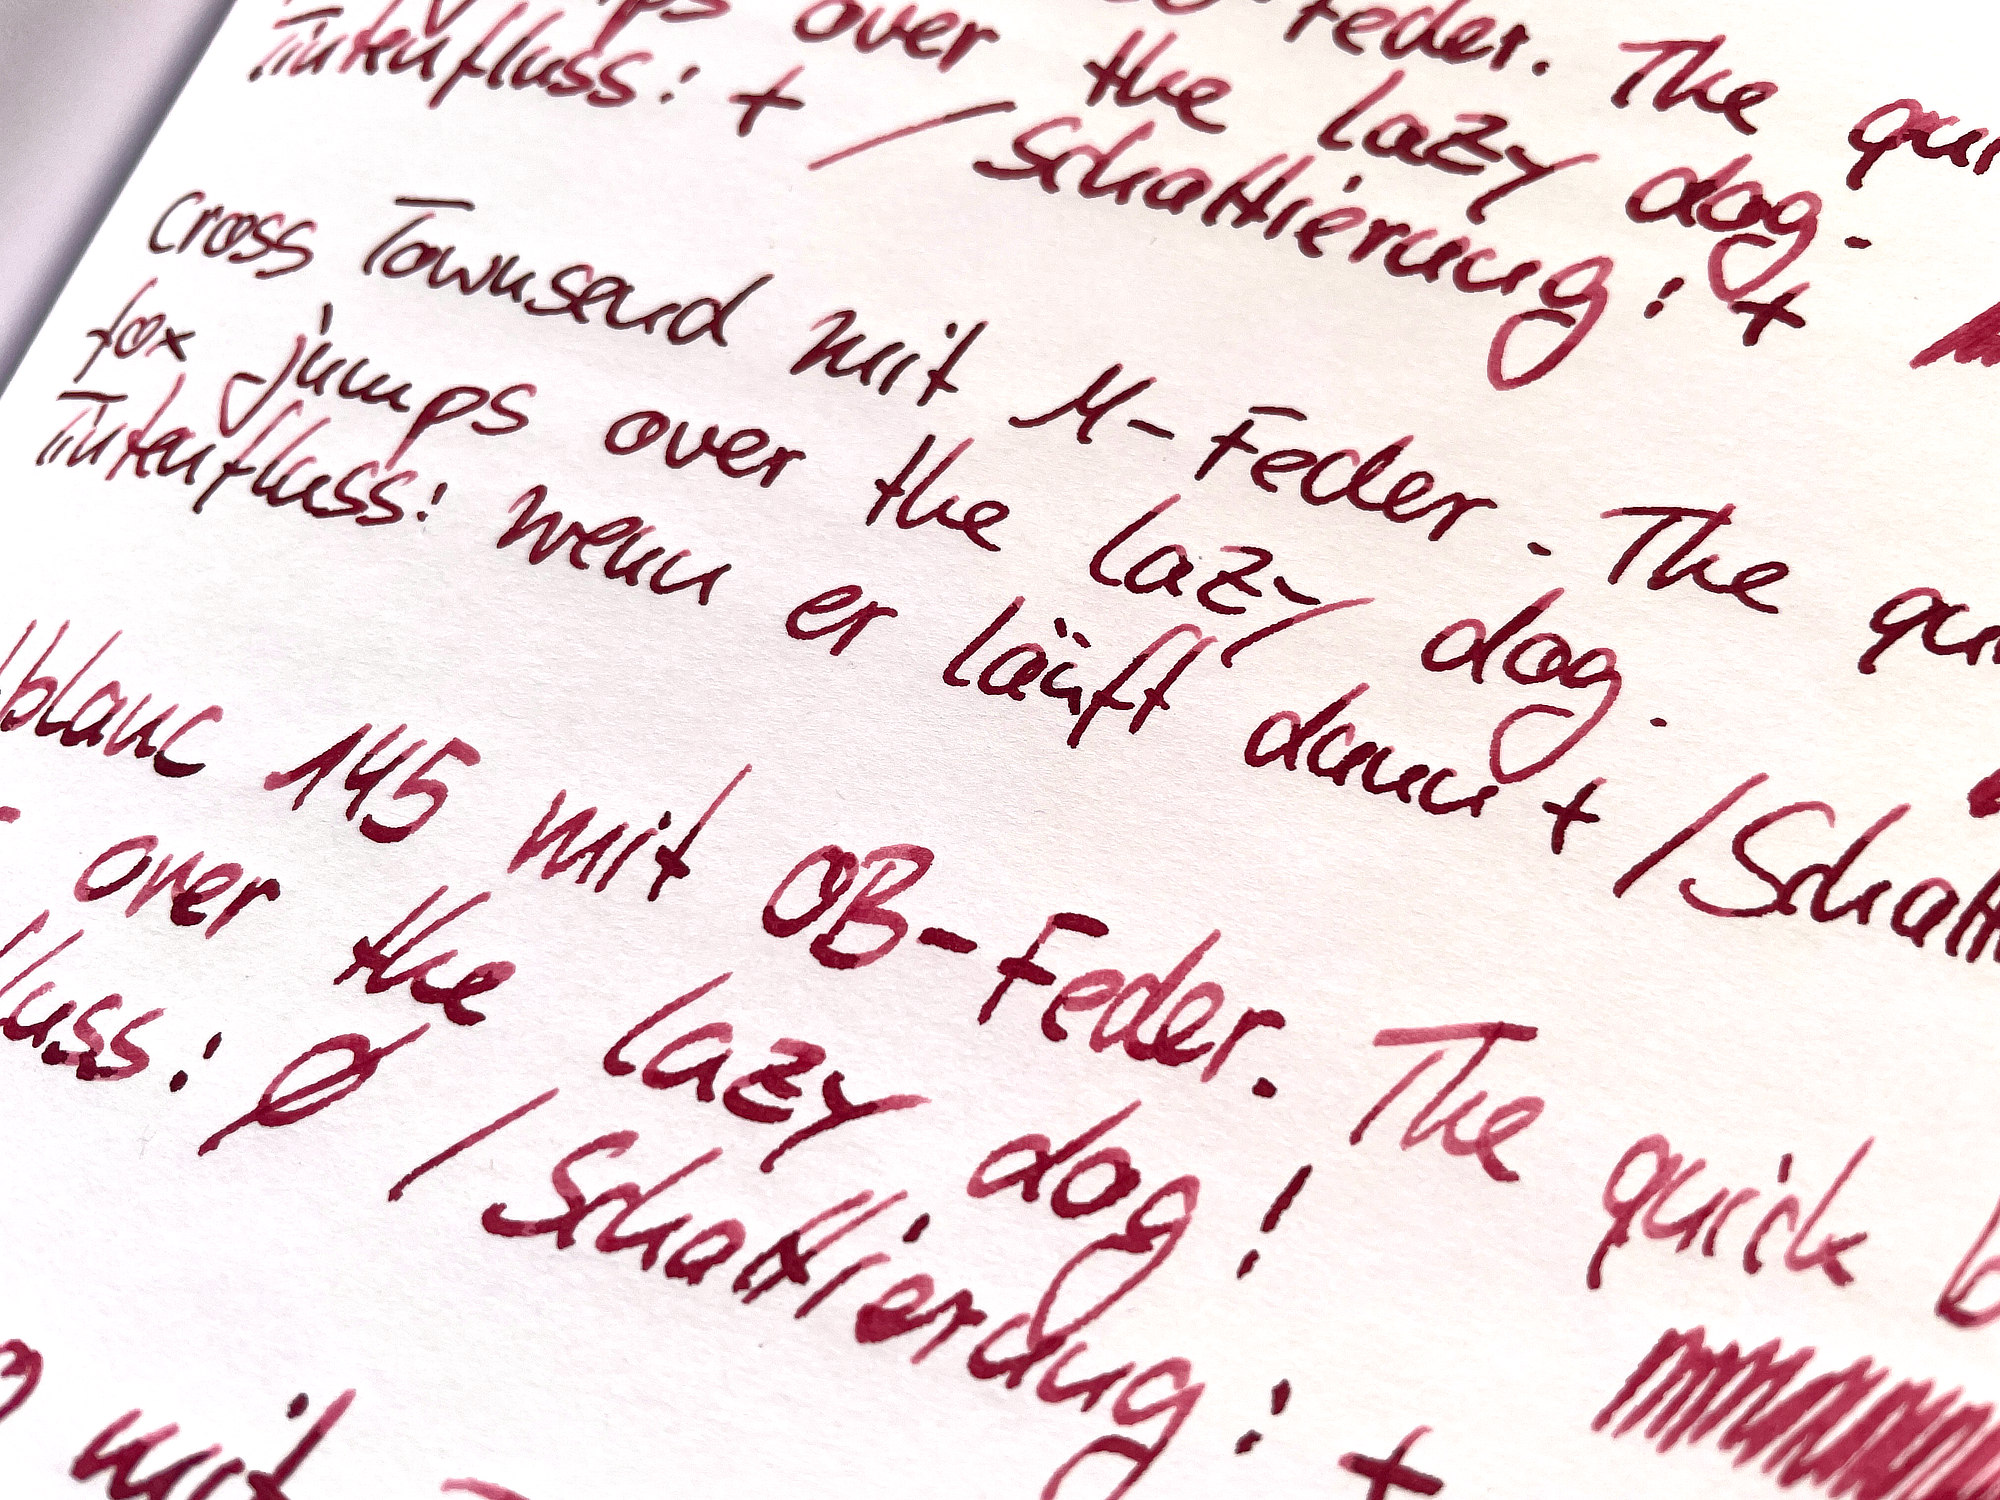 over the lazy dog.
Tintenfluss: + / Schattierung: +
Cross Townsend mit M-Feder. The
fox jumps over the lazy dog.
Tintenfluss: wenn er läuft dann + /
145 mit OB-Feder. The quick
over the lazy dog!
: Ø / Schattierung: +
mit